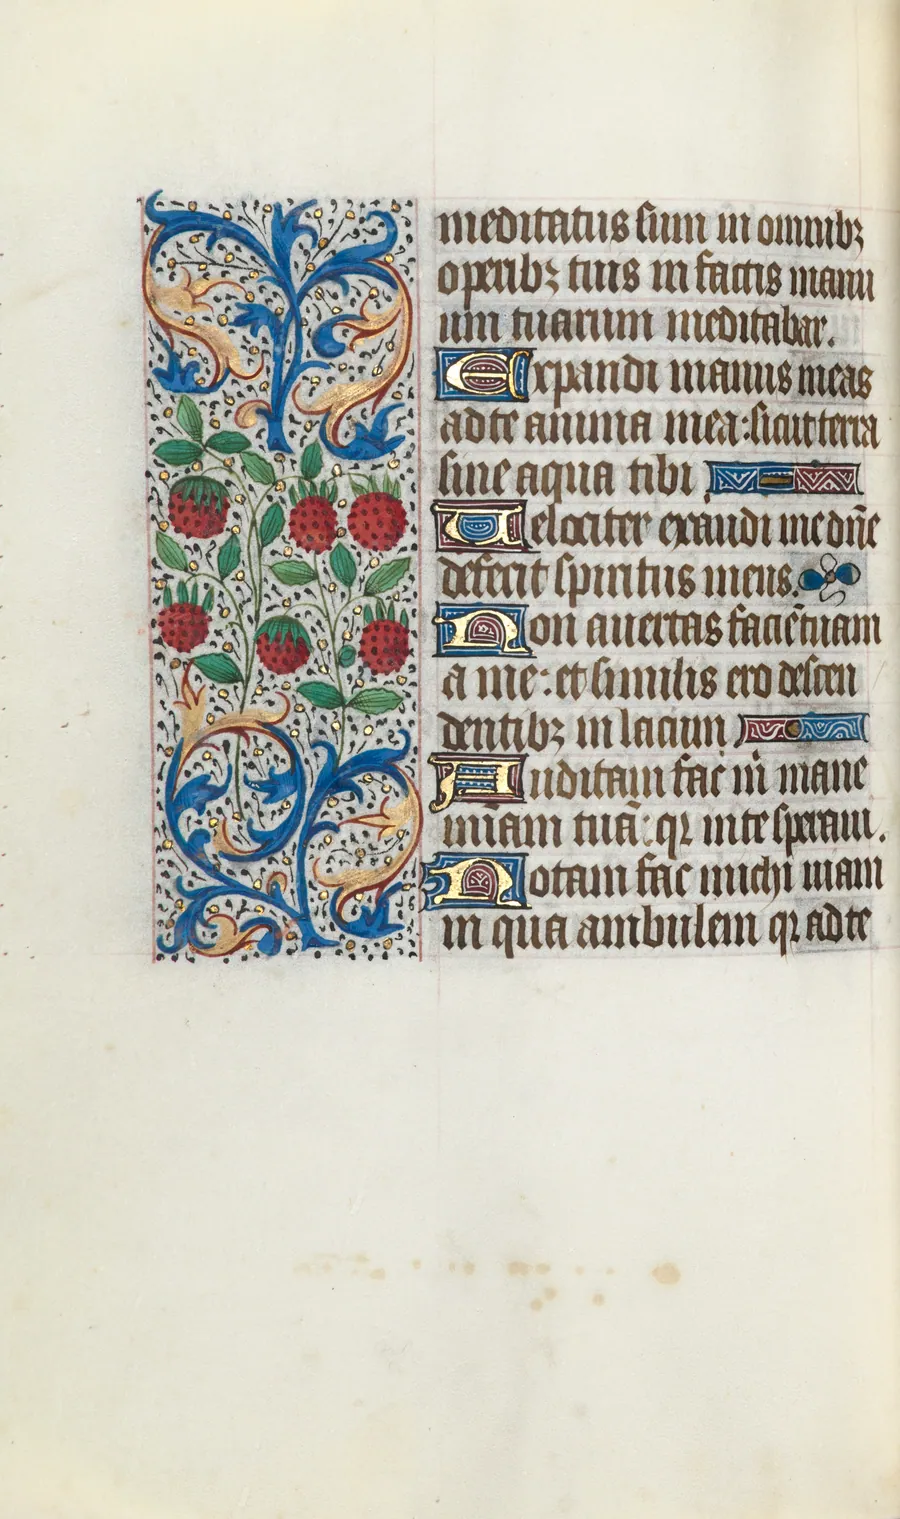 meditatus sum in omnibꝫ
operibꝫ tuis in factis manu
um tuarum meditabar.
Expandi manus meas
ad te anima mea: sicut terra
sine aqua tibi
Velociter exaudi me dn̄e
defecit spiritus meus.
Non auertas faciē tuam
a me: et similis ero descen
dentibꝫ in lacum
Auditam fac m̄ mane
mīam tuā: qꝛ in te speraui.
Notam fac michi uiam
in qua ambulem qꝛ ad te